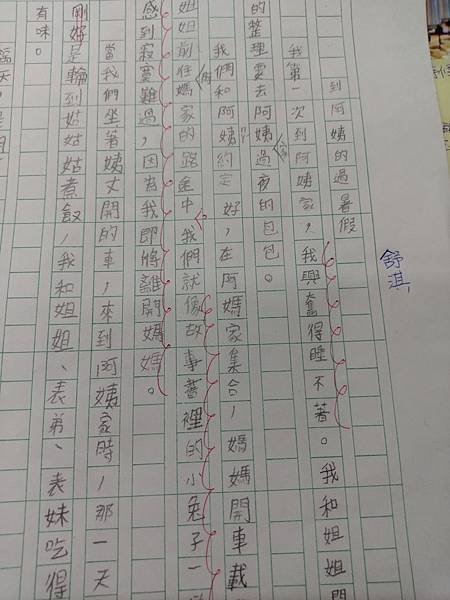 舒淇
到阿姨的過暑假
我第一次到阿姨家,我興奮得睡不著。我和姐姐門
的整理要去阿姨家過夜的包包。
我們和阿姨約定好,在阿媽家集合,媽媽開車載
姐姐前往阿媽家的路途中,我們就像故事書裡的小兔子一
感到寂寞難過,因為我即將離開媽媽。
當我們坐著姨丈開的車,來到阿姨家時,那一天
剛好是輪到姑姑姑煮飯,我和姐姐、表弟、表妹吃得
有味。